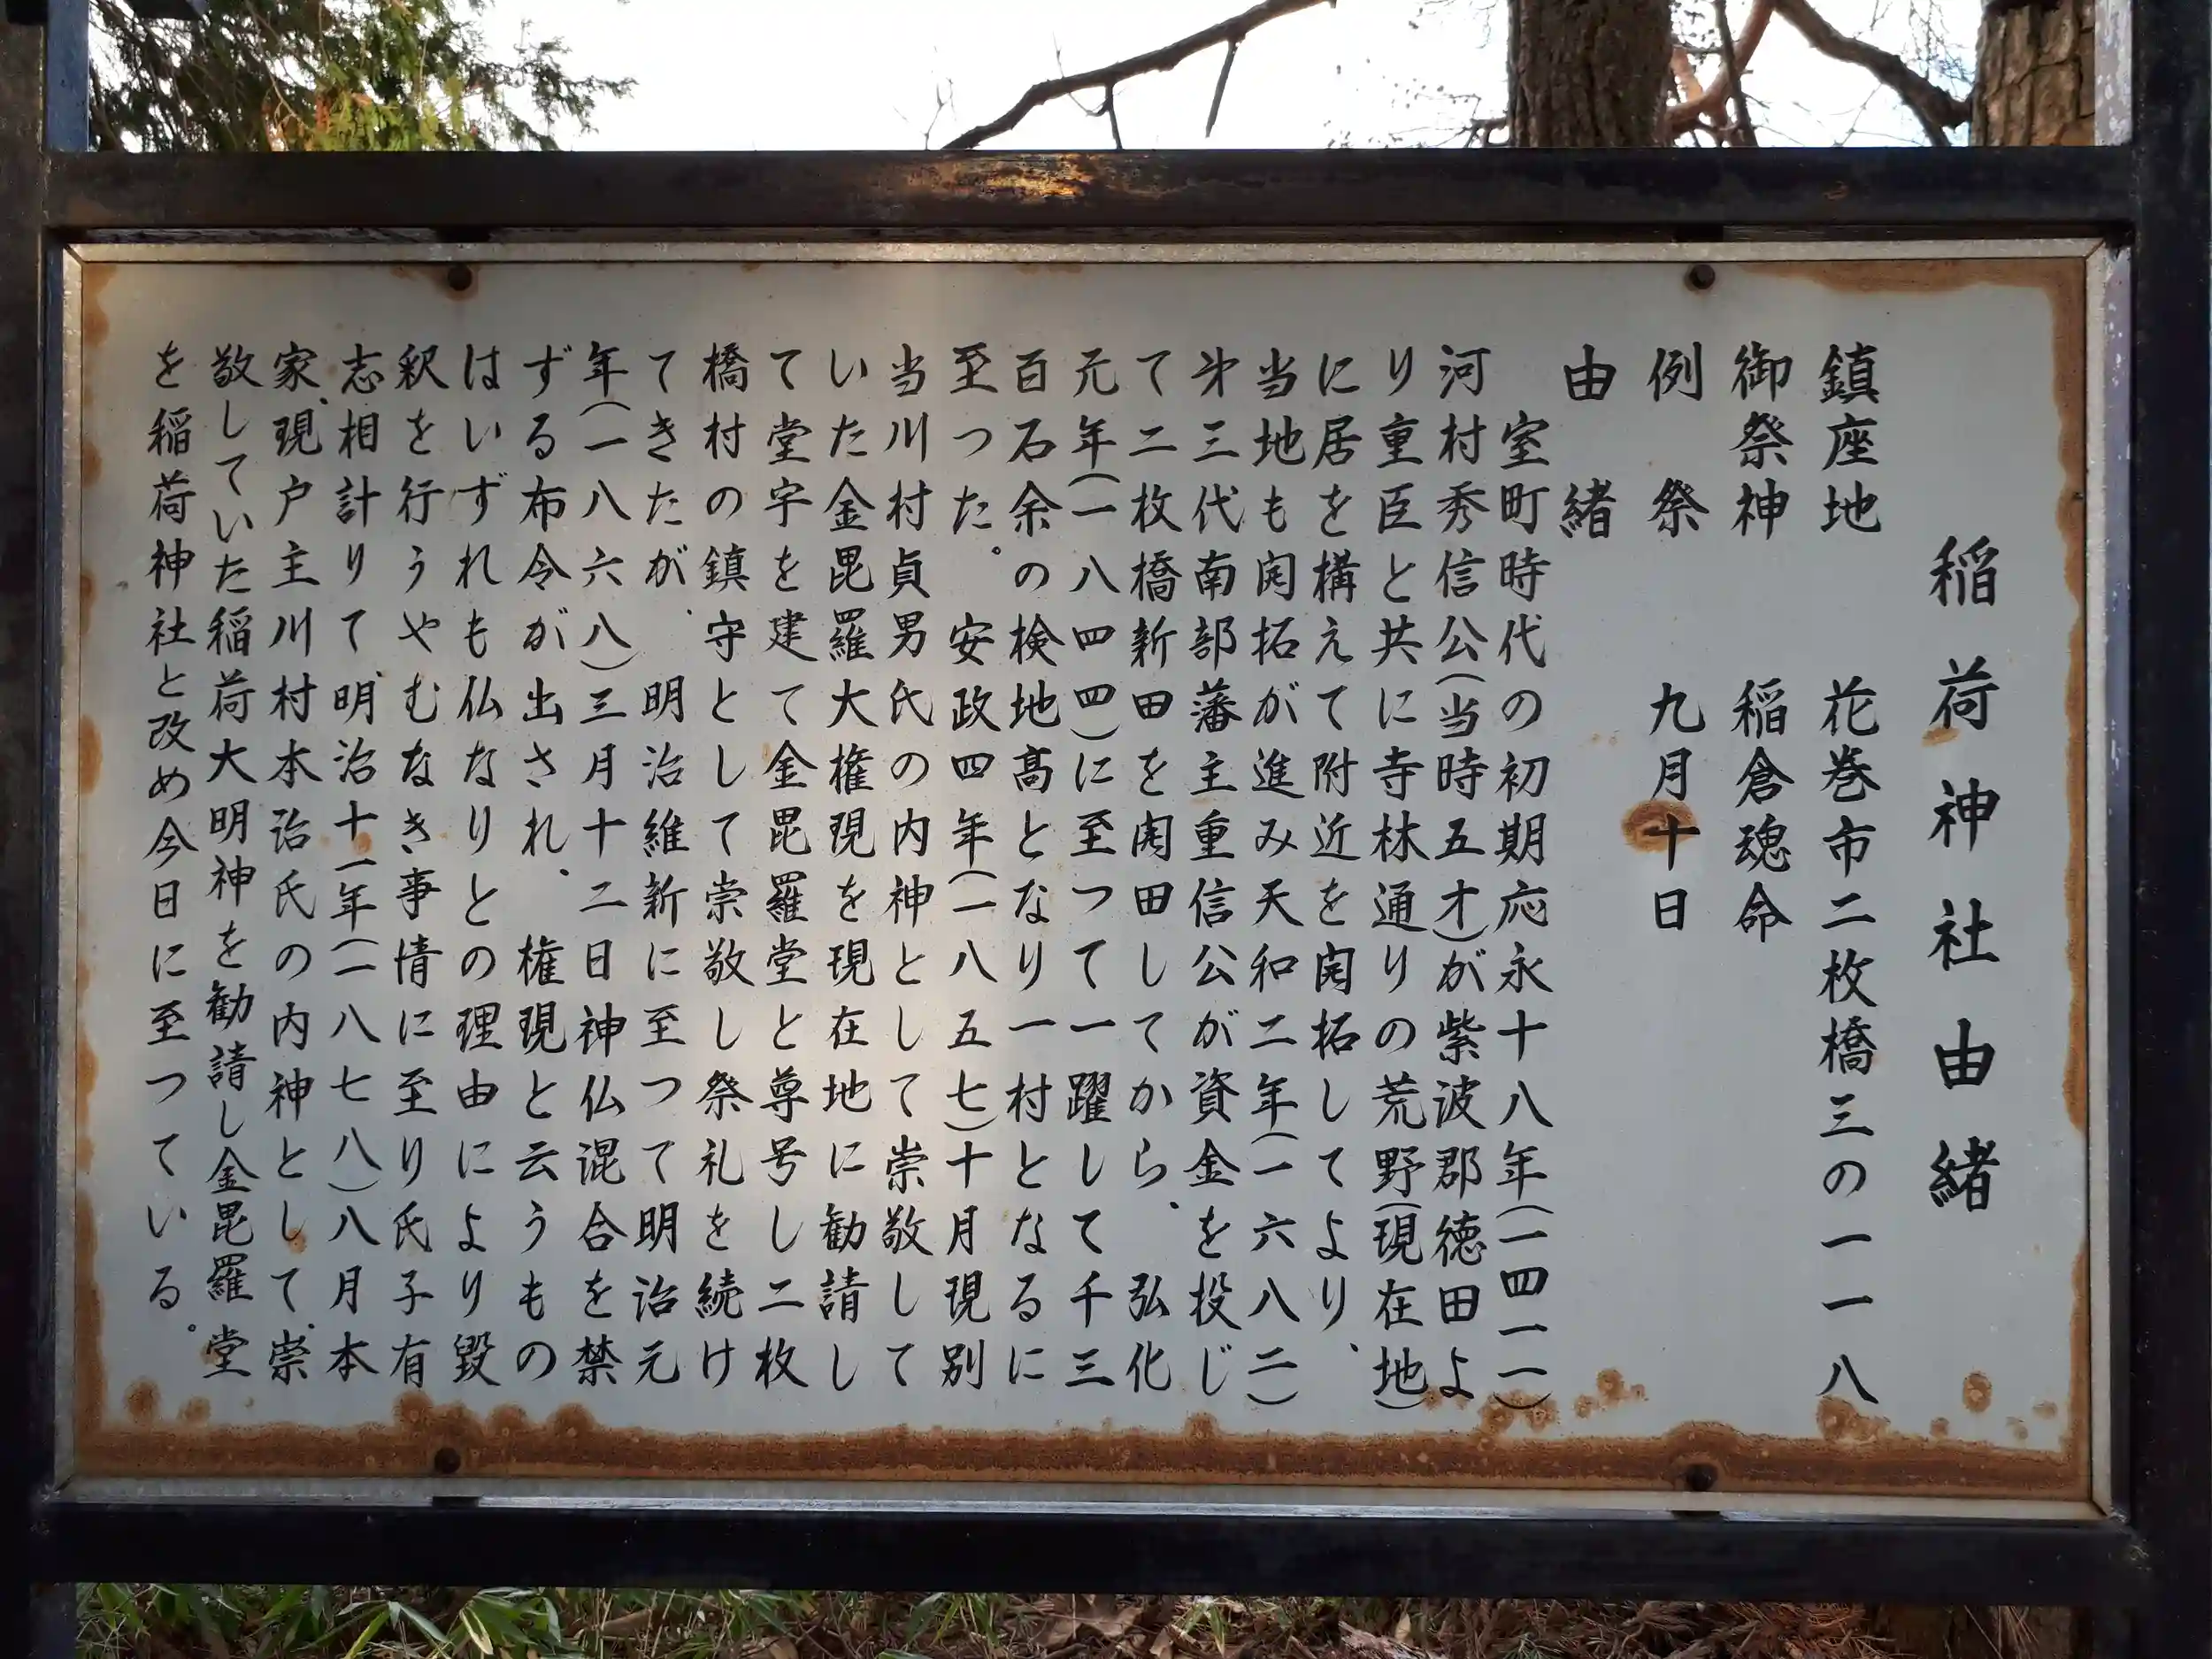 稲荷神社由緒
鎮座地　花巻市二枚橋三の一一八
御祭神　稲倉魂命
例祭　九月十日
由緒
室町時代の初期応永十八年(一四一一)
河村秀信公(当時五才)が紫波郡徳田よ
り重臣と共に寺林通りの荒野(現在地)
に居を構えて附近を開拓してより、
当地も開拓が進み天和二年(一六八二)
第三代南部藩主重信公が資金を投じ
て二枚橋新田を開田してから、弘化
元年(一八四四)に至つて一躍して千三
百石余の検地高となり一村となるに
至つた。　安政四年(一八五七)十月現別
当川村貞男氏の内神として崇敬して
いた金毘羅大権現を現在地に勧請し
て堂宇を建て金毘羅堂と尊号し二枚
橋村の鎮守として崇敬し祭礼を続け
てきたが、明治維新に至つて明治元
年(一八六八)三月十二日神仏混合を禁
ずる布令が出され、権現と云うもの
はいずれも仏なりとの理由により毀
釈を行うやむなき事情に至り氏子有
志相計りて、明治十一年(一八七八)八月本
家、現戸主川村本治氏の内神として、崇
敬していた稲荷大明神を勧請し金毘羅堂
を稲荷神社と改め今日に至つている。